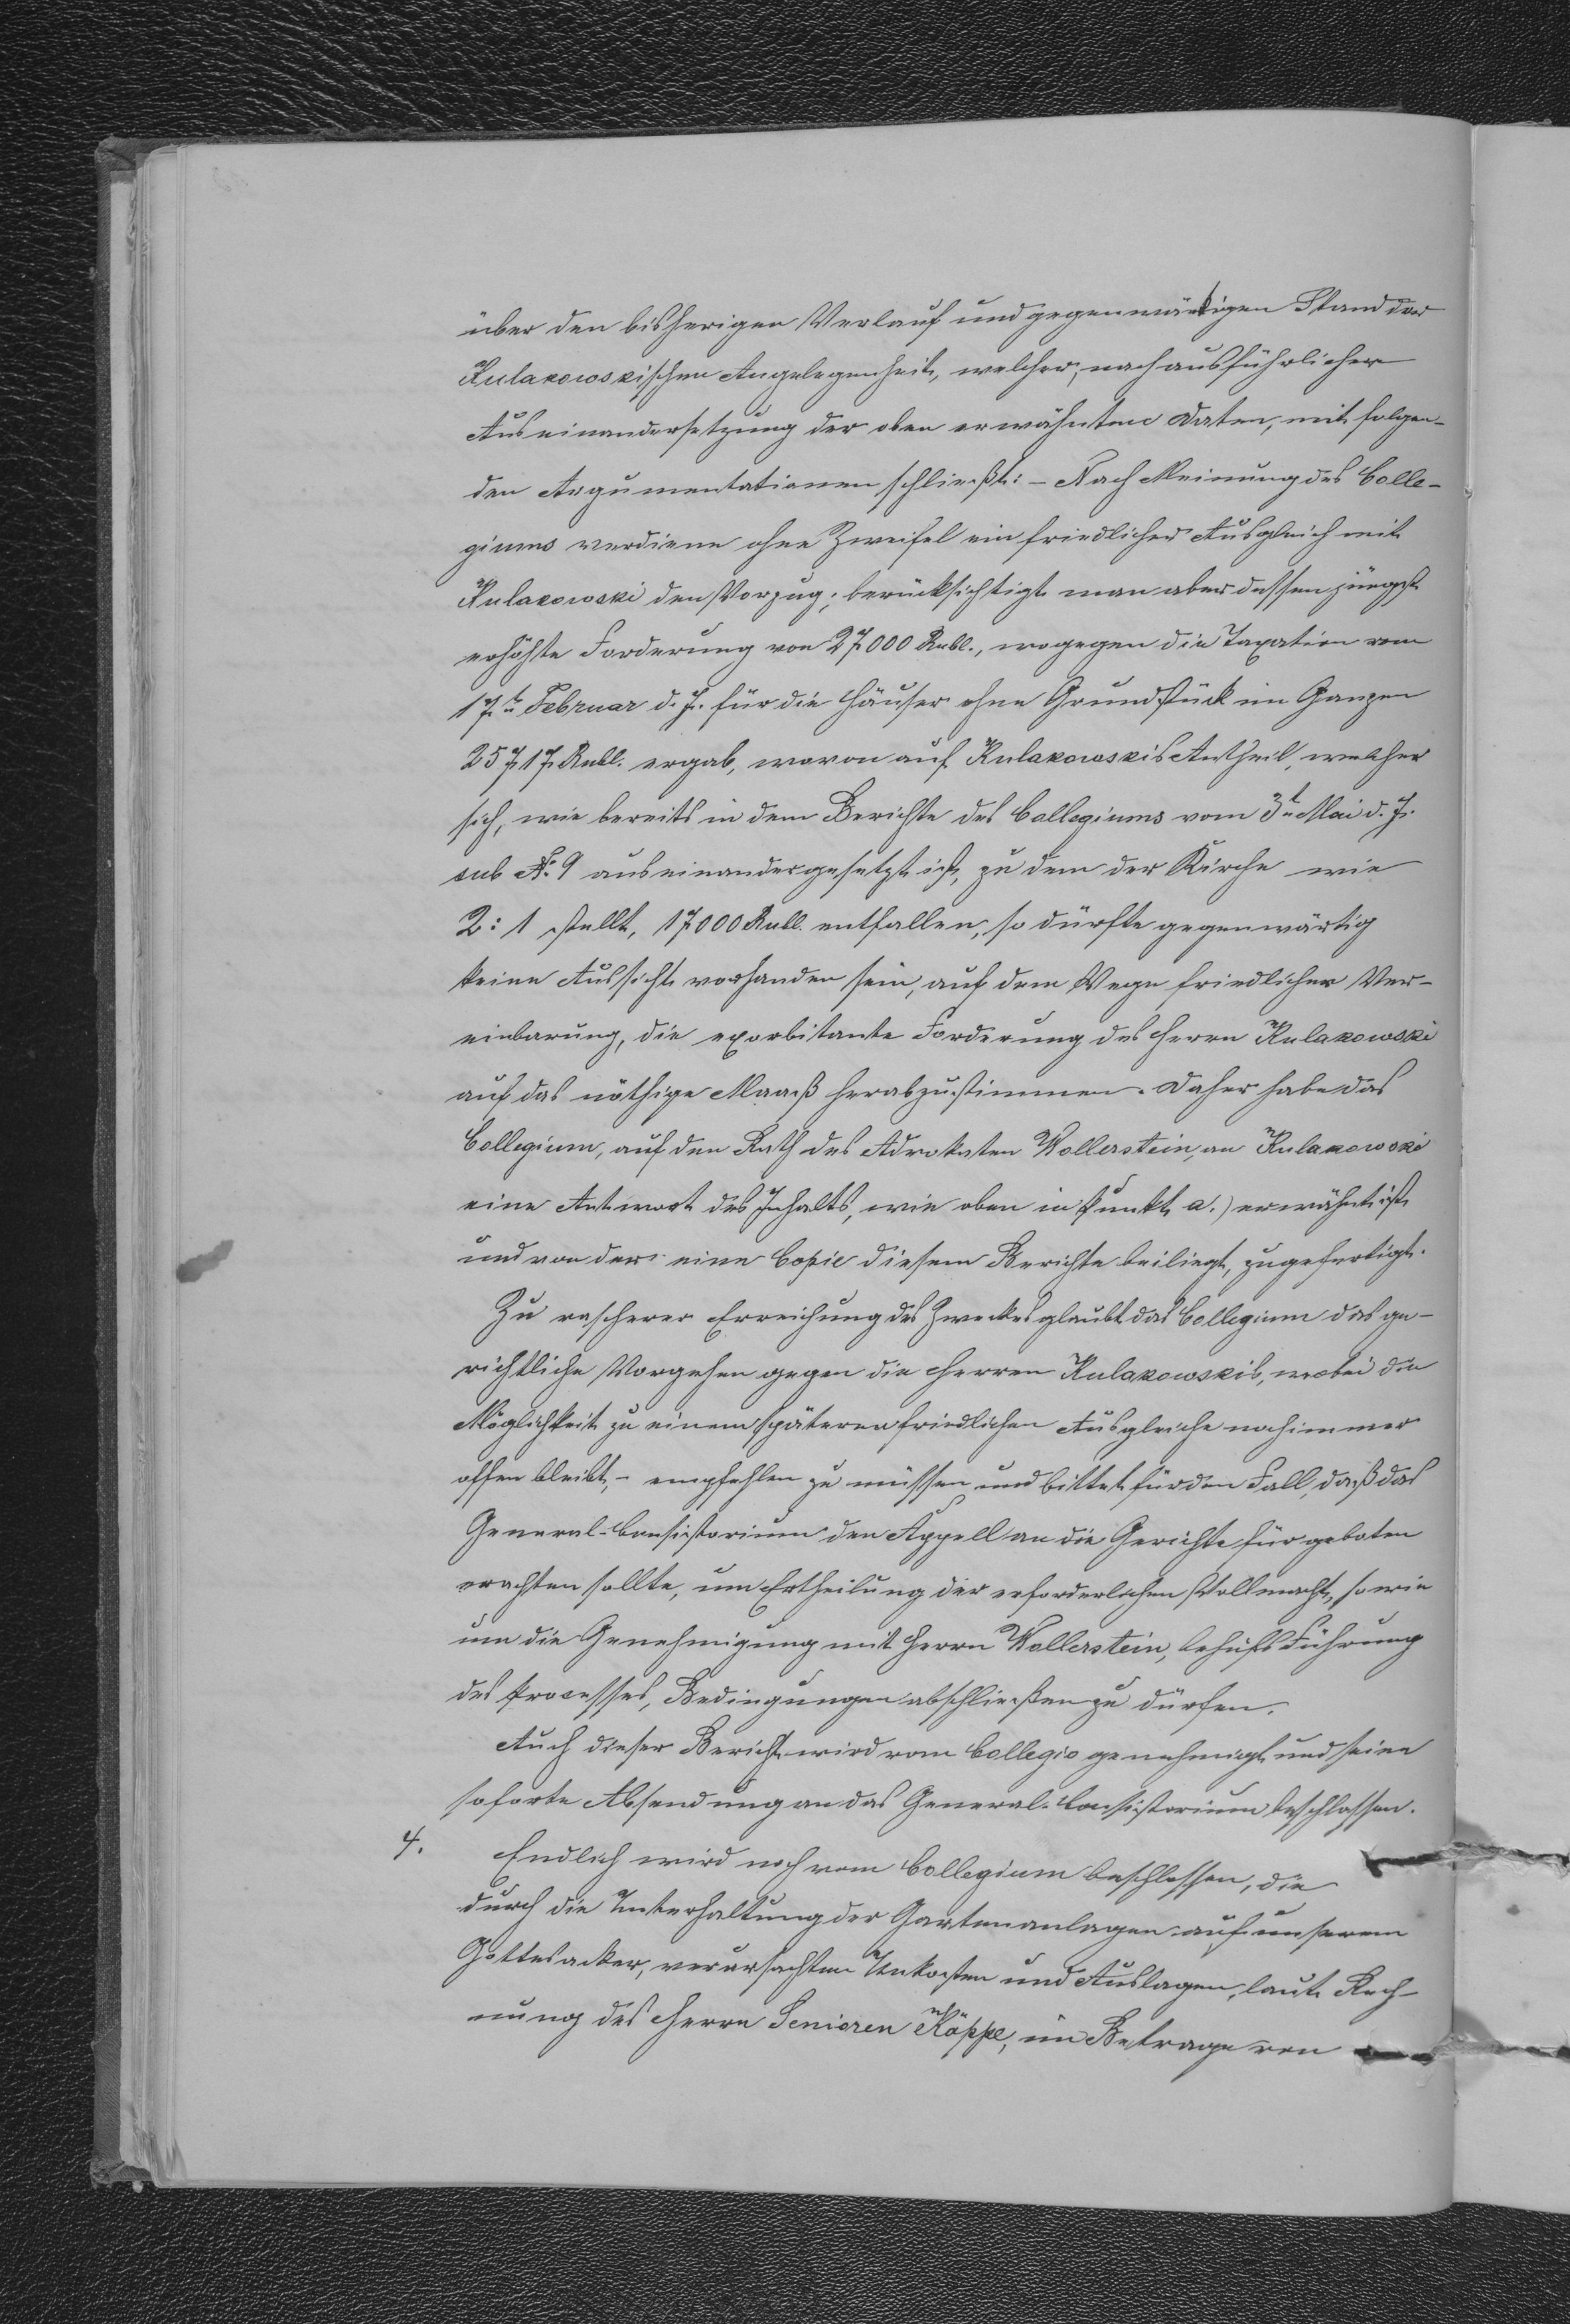 über den bisherigen Verlauf und gegenwärtigen Stand der
Kulakowskischen Angelegenheit, welcher, nach ausführlicher
Auseinandersetzung der oben erwähnten Daten, mit folgen-
den Argumentationen schließt: – Nach Meinung des Colle-
giums verdiene ohne Zweifel ein friedlicher Ausgleich mit
Kulakowski den Vorzug; berücksichtigt man aber dessen jüngst
erhöhte Forderung von 27000 Rubl., wogegen die Taxation vom
17.t. Februar d. J. für die Häuser ohne Grundstück im Ganzen
25717 Rubl. ergab, wovon auf Kulakowskis Antheil, welcher
sich, wie bereits in dem Berichte des Collegiums vom 3t. Mai d. J.
sub No. 9 auseinandergesetzt ist, zu dem der Kirche wie
2 : 1 stellt, 17000 Rubl. entfallen, so dürfte gegenwärtig
keine Aussicht vorhanden sein, auf dem Wege friedlicher Ver-
einbarung, die exorbitante Forderung des Herrn Kulakowski
auf das nöthige Maaß herabzustimmen. Daher habe das
Collegium, auf den Rath des Advokaten Wollerstein, an Kulakowski
eine Antwort des Inhalts, wie oben in Punkt a.) erwähnt ist
und von der eine Copie diesem Berichte beiliegt, zugefertigt.
Zu rascherer Erreichung des Zweckes glaubt das Collegium das ge-
richtliche Vorgehen gegen die Herren Kulakowskis, wobei die
Möglichkeit zu einem späteren friedlichen Ausgleiche noch immer
offen bleibt, – empfehlen zu müssen und bittet für den Fall, daß das
General-Consistorium den Appell an die Gerichte für geboten
erachten sollte, um Ertheilung der erforderlichen Vollmacht, sowie
um die Genehmigung mit Herrn Wollerstein, behufs Führung
des Processes, Bedingungen abschließen zu dürfen.
Auch dieser Bericht wird vom Collegio genehmigt und seine
soforte Absendung an das General-Consistorium beschlossen.
4. Endlich wird noch vom Collegium beschlossen, die
durch die Unterhaltung der Gartenanlagen auf unserem
Gottesacker, verursachten Unkosten und Auslagen, laut Rech-
nung des Herrn Senioren Köppe, im Betrage von